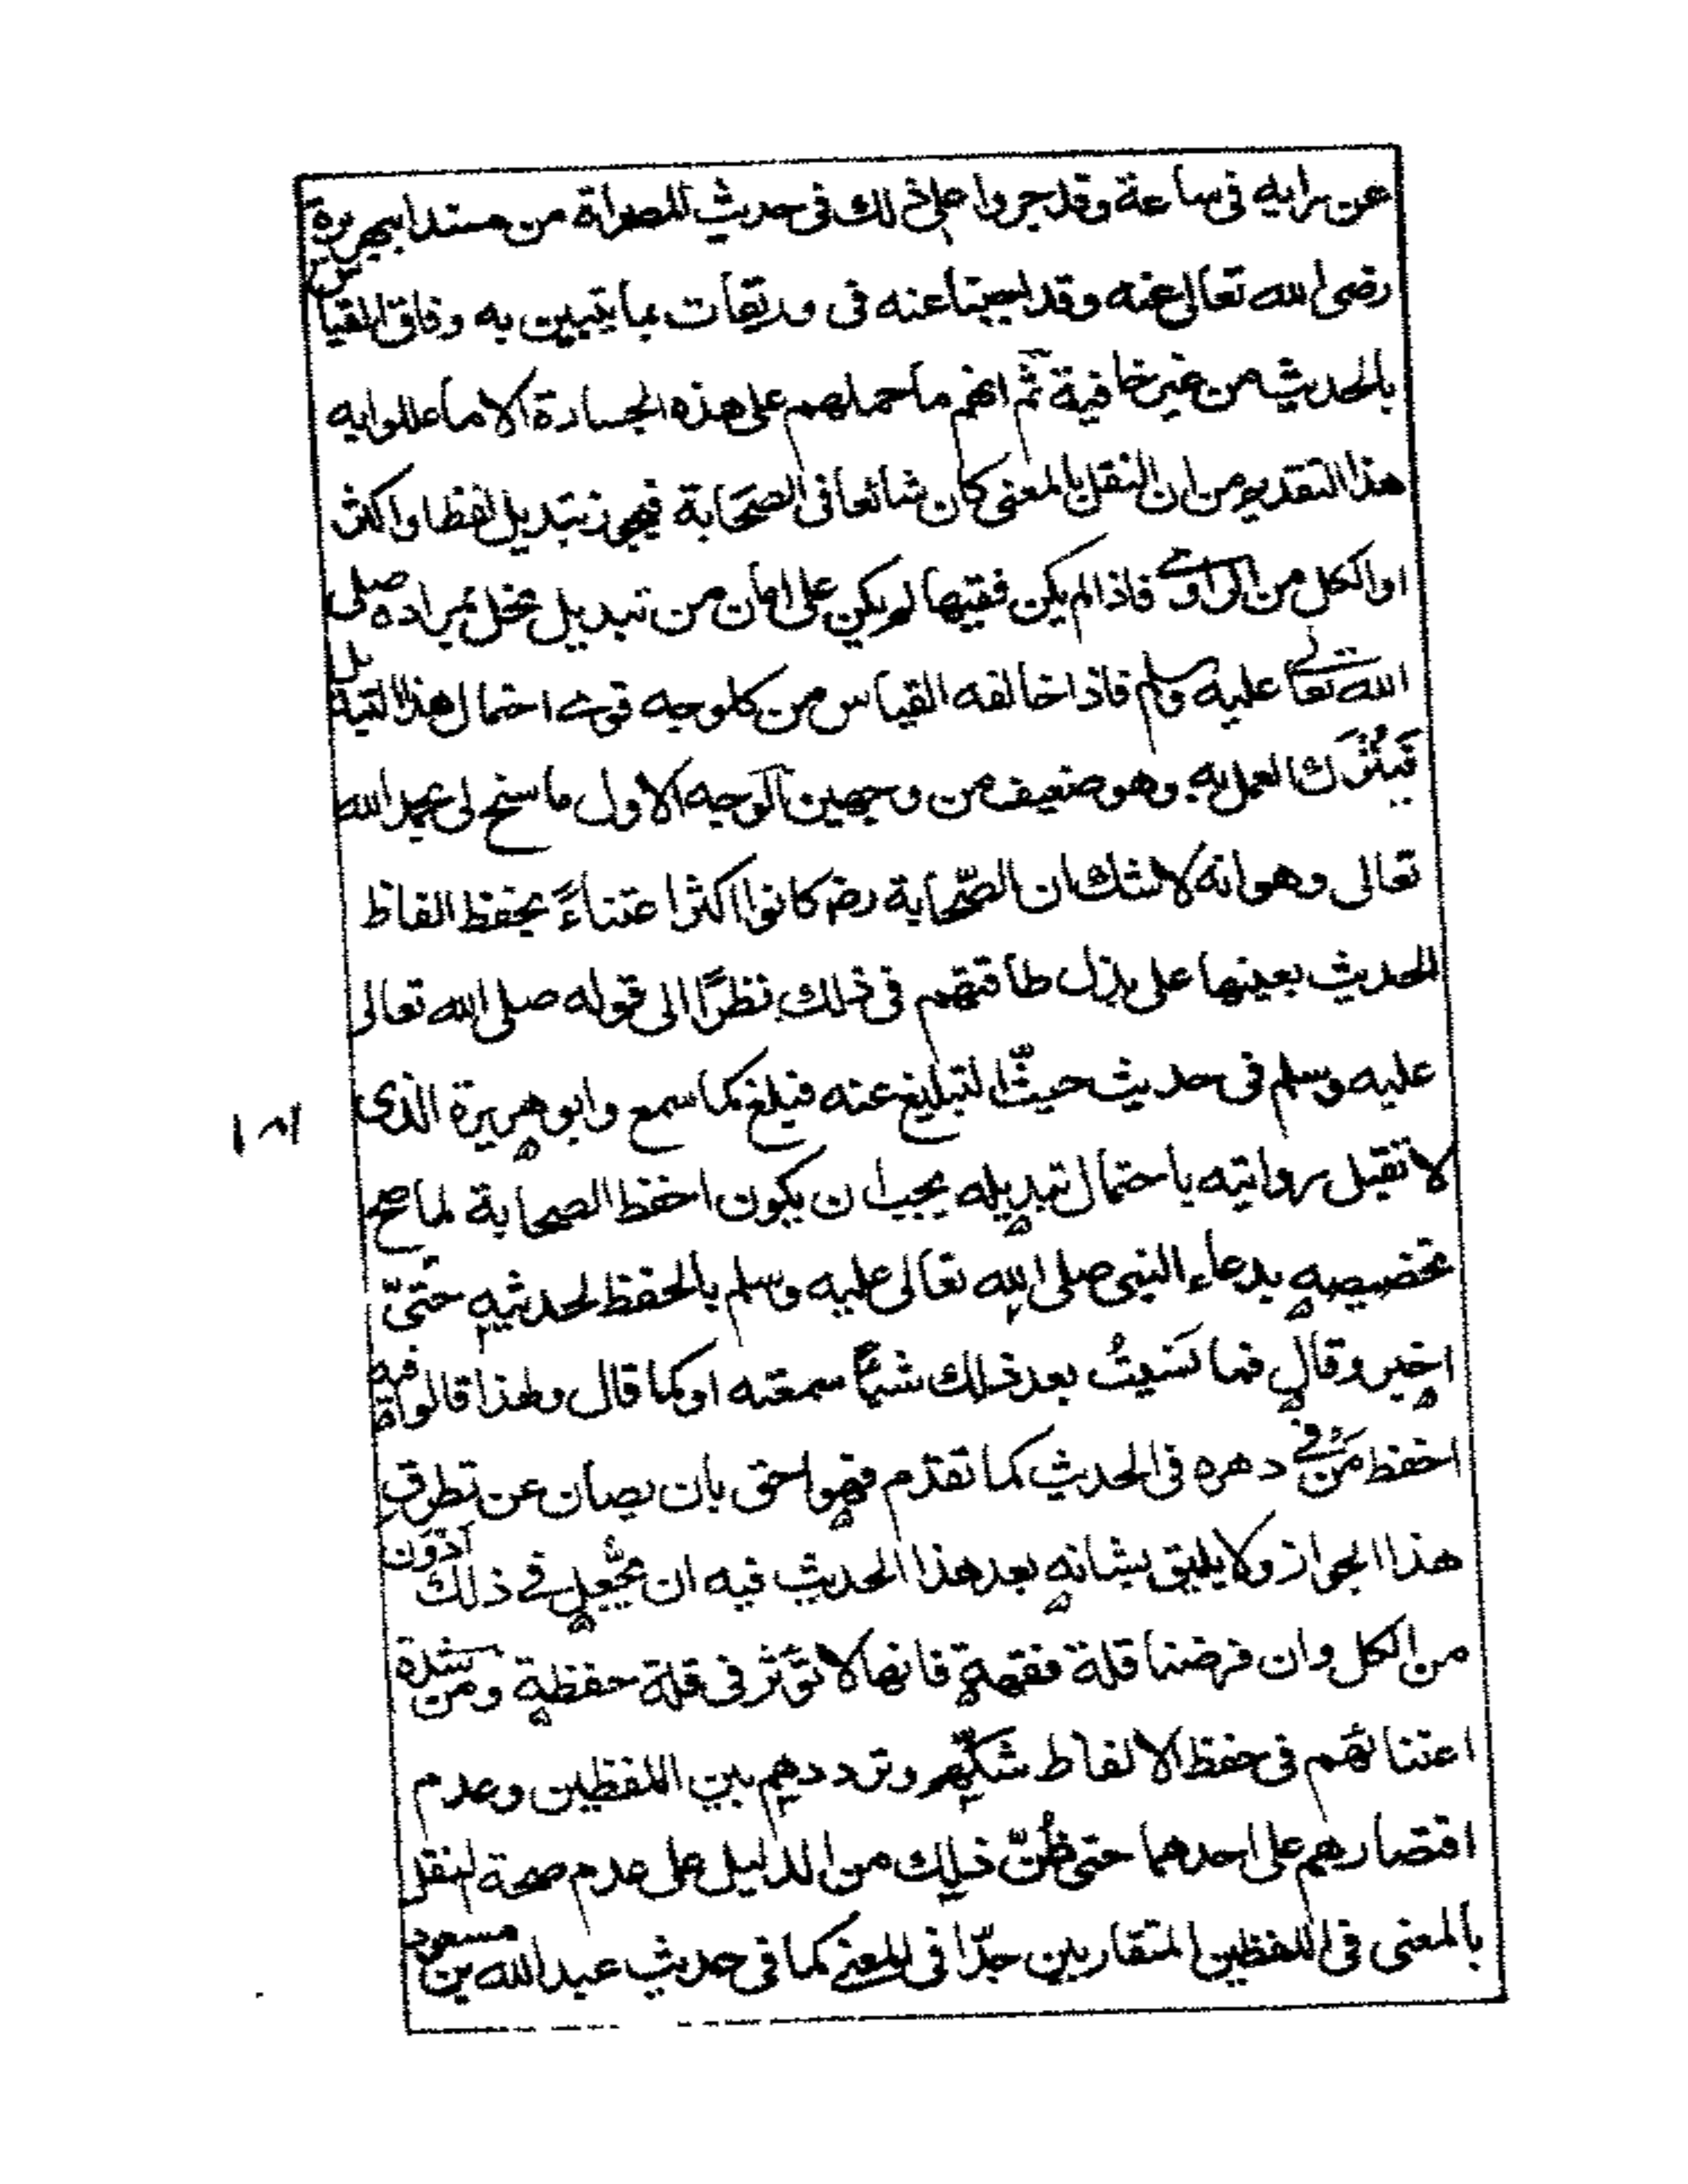 عن رايه فى ساعة وقد جروا على ذلك فى حديث المصراة من مسند ابى هريرة
رضى الله تعالى عنه وقد اجبنا عنه فى وريقات بما يتبين به وفاق القياس
بالحديث من غير خافية ثم انهم ما حملهم على هذه الجسارة الا ما عللوا به
هذا التقديم من ان النقل بالمعنى كان شائعا فى الصحابة فيجوز تبديل لفظ او اكثر
او الكل من الراوى فاذا لم يكن فقيها لم يكن على امان من تبديل مخل بمراده صلى
الله تعالى عليه وسلم فاذا خالفه القياس من كل وجه قوى احتمال هذا التبديل
فَيُتْرَك العمل به وهو ضعيف من وجهين الوجه الاول ما سنح لى بحمد الله
تعالى وهو انه لا شك ان الصّحابة رضه كانوا اكثر اعتناءً بحفظ الفاظ
الحديث بعينها على بذل طاقتهم فى ذلك نظرًا الى قوله صلى الله تعالى
عليه وسلم فى حديث حيثّا لتبليغ عنه فبلغ كما سمع وابو هريرة الذى
١٨١
لا تقبل روايته باحتمال تبديله يجب ان يكون احفظ الصحابة لما صح
تخصيصه بدعاء النبى صلى الله تعالى عليه وسلم بالحفظ لحديثه حتىّ
اخبر وقال فما نسَيتُ بعد ذلك شيئًا سمعته او كما قال ولهذا قالوا فيه انه
احفظ مَنْ فى دهره فى الحديث كما تقدم فهو احق بان يصان عن تطرق
هذا الجواز ولا يليق بشانه بعد هذا الحديث فيه ان يُّجعل فى ذلك اَدْوَن
من الكل وان فرضنا قلة فقهه فانها لا تؤثر فى قلة حفظه ومن شدة
اعتنائهم فى حفظ الالفاظ شكّهم وترددهم بين اللفظين وعدم
اقتصارهم على احدهما حتى ظُنّ ذلك من الدليل على عدم صحة النقل
بالمعنى فى اللفظين المتقاربين جدّا فى المعنى كما فى حديث عبد الله بن مسعود